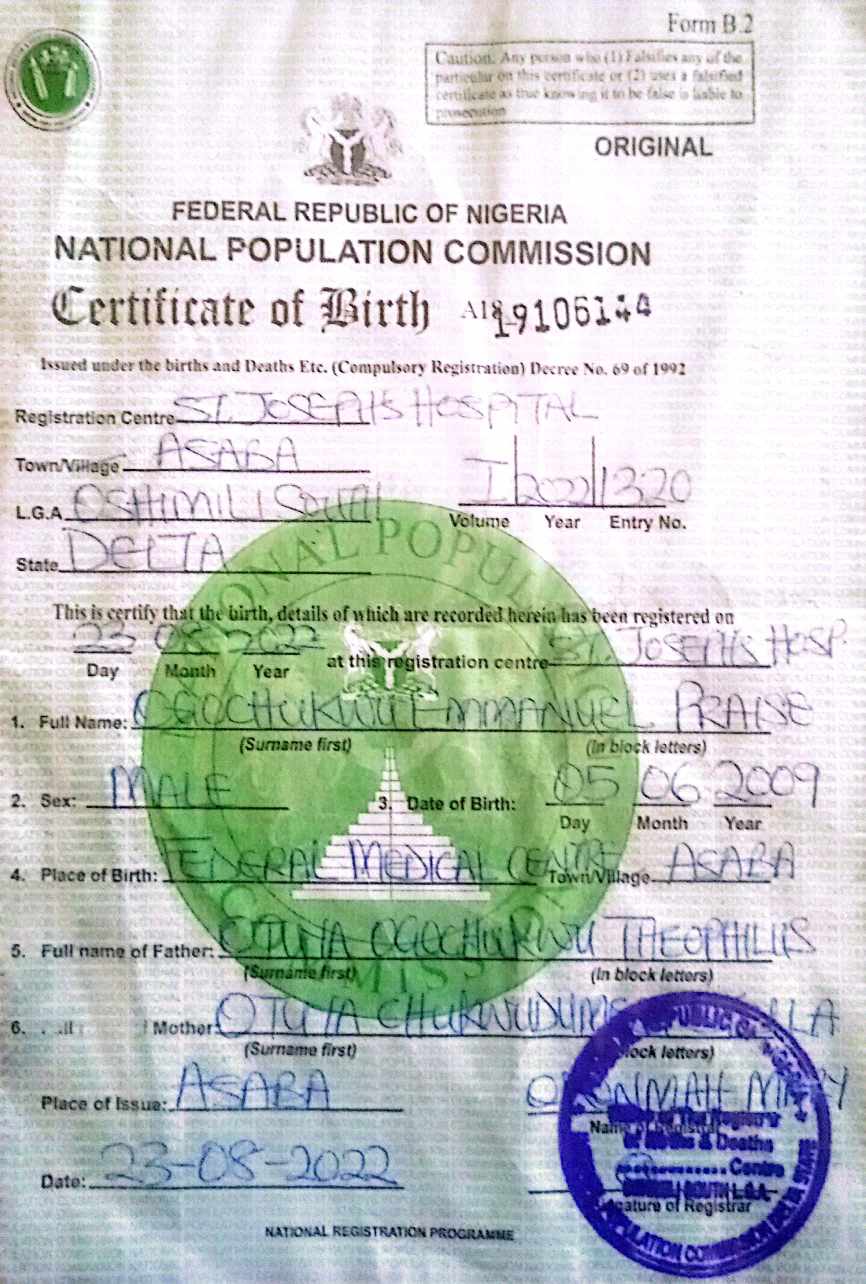 Form B.2
Caution. Any person who (1) Falsifies any of the
particular on this certificate or (2) uses a falsified
certificate as true knowing it to be false is liable to
prosecution
ORIGINAL
FEDERAL REPUBLIC OF NIGERIA
NATIONAL POPULATION COMMISSION
Certificate of Birth
Issued under the births and Deaths Etc. (Compulsory Registration) Decree No. 69 of 1992
Registration Centre ST. JOSEPHS HOSPITAL
Town/Village ASABA
L.G.A OSHIMILI SOUTH I 2022 1320
Volume Year Entry No.
State DELTA
This is certify that the birth, details of which are recorded herein has been registered on
23 08 2022 at this registration centre ST. JOSEPHS HOSP.
Day Month Year
1. Full Name: OGOCHUKWU EMMANUEL PRAISE
(Surname first) (In block letters)
2. Sex: MALE 3. Date of Birth: 05 06 2009
Day Month Year
4. Place of Birth: FEDERAL MEDICAL CENTRE Town/Village ASABA
5. Full name of Father: OGOCHUKWU THEOPHILUS
(Surname first) (In block letters)
6. Mother:
(Surname first) block letters)
Place of Issue: ASABA MARY
Name of Registrar
Date: 23-08-2022
Signature of Registrar
of The Registrar
of Births & Deaths
Centre
SOUTH L.G.A
POPULATION COMMISSION DELTA STATE
NATIONAL REGISTRATION PROGRAMME